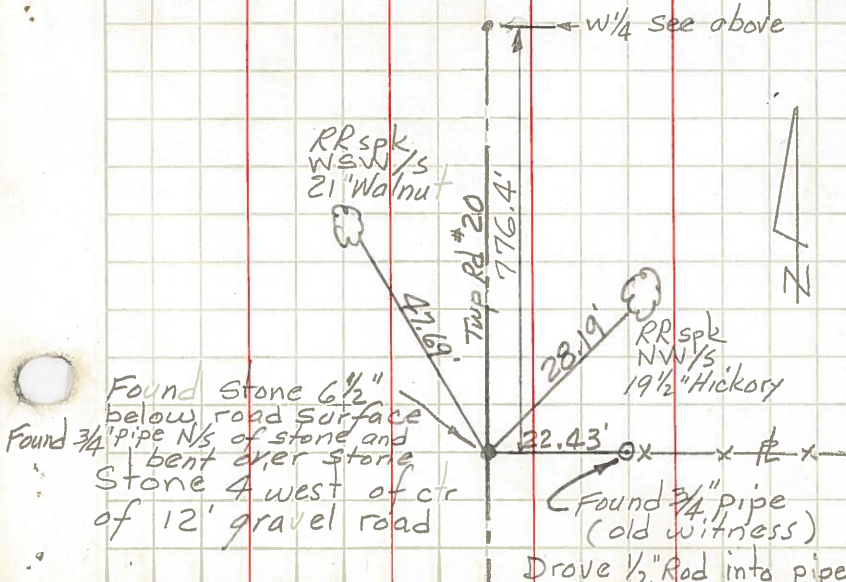 W 1/4 See above
RR spk
WSW/s
21" Walnut
Twp Rd #20
776.4'
N
47.69'
28.19'
RR spk
NW/s
19 1/2" Hickory
Found Stone 6 1/2"
below road surface
Found 3/4" pipe N/s of stone and
bent over stone
Stone 4 west of ctr
of 12' gravel road
22.43'
x x PL x
Found 3/4" pipe
(old witness)
Drove 1/2" Rod into pipe